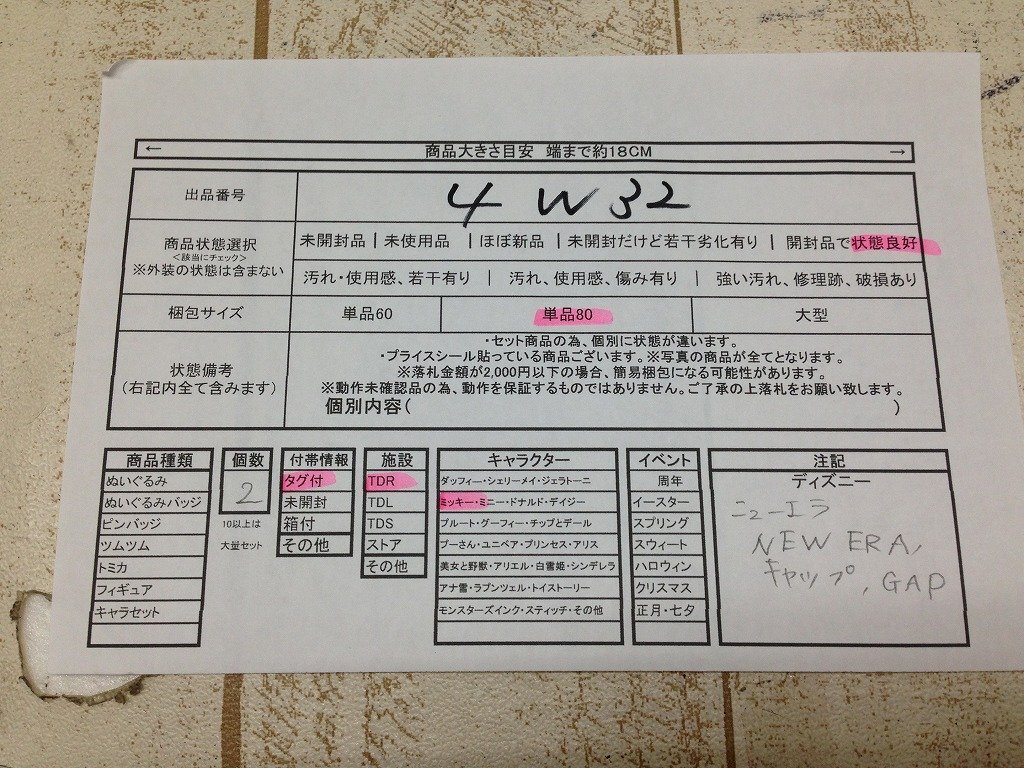 ← 商品大きさ目安 端まで約18CM →
出品番号 4 W 32
商品状態選択
<該当にチェック>
※外装の状態は含まない
未開封品 | 未使用品 | ほぼ新品 | 未開封だけど若干劣化有り | 開封品で状態良好
汚れ・使用感、若干有り | 汚れ、使用感、傷み有り | 強い汚れ、修理跡、破損あり
梱包サイズ 単品60 単品80 大型
状態備考
(右記内全て含みます)
・セット商品の為、個別に状態が違います。
・プライスシール貼っている商品ございます。※写真の商品が全てとなります。
※落札金額が2,000円以下の場合、簡易梱包になる可能性があります。
※動作未確認品の為、動作を保証するものではありません。ご了承の上落札をお願い致します。
個別内容( )
商品種類
ぬいぐるみ
ぬいぐるみバッジ
ピンバッジ
ツムツム
トミカ
フィギュア
キャラセット
個数
2
10以上は
大量セット
付帯情報
タグ付
未開封
箱付
その他
施設
TDR
TDL
TDS
ストア
その他
キャラクター
ダッフィー・シェリーメイ・ジェラトーニ
ミッキー・ミニー・ドナルド・デイジー
プルート・グーフィー・チップとデール
プーさん・ユニベア・プリンセス・アリス
美女と野獣・アリエル・白雪姫・シンデレラ
アナ雪・ラプンツェル・トイストーリー
モンスターズインク・スティッチ・その他
イベント
周年
イースター
スプリング
スウィート
ハロウィン
クリスマス
正月・七夕
注記
ディズニー
ニューエラ
NEW ERA,
キャップ, GAP